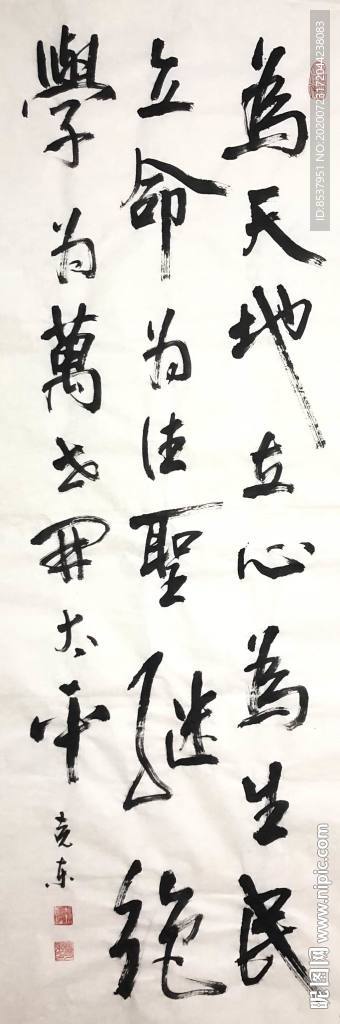 為天地立心為生民
立命为往聖继绝
學为萬世開太平
克东
ID:8537951 NO:20200723172044238083
昵图网 www.nipic.com